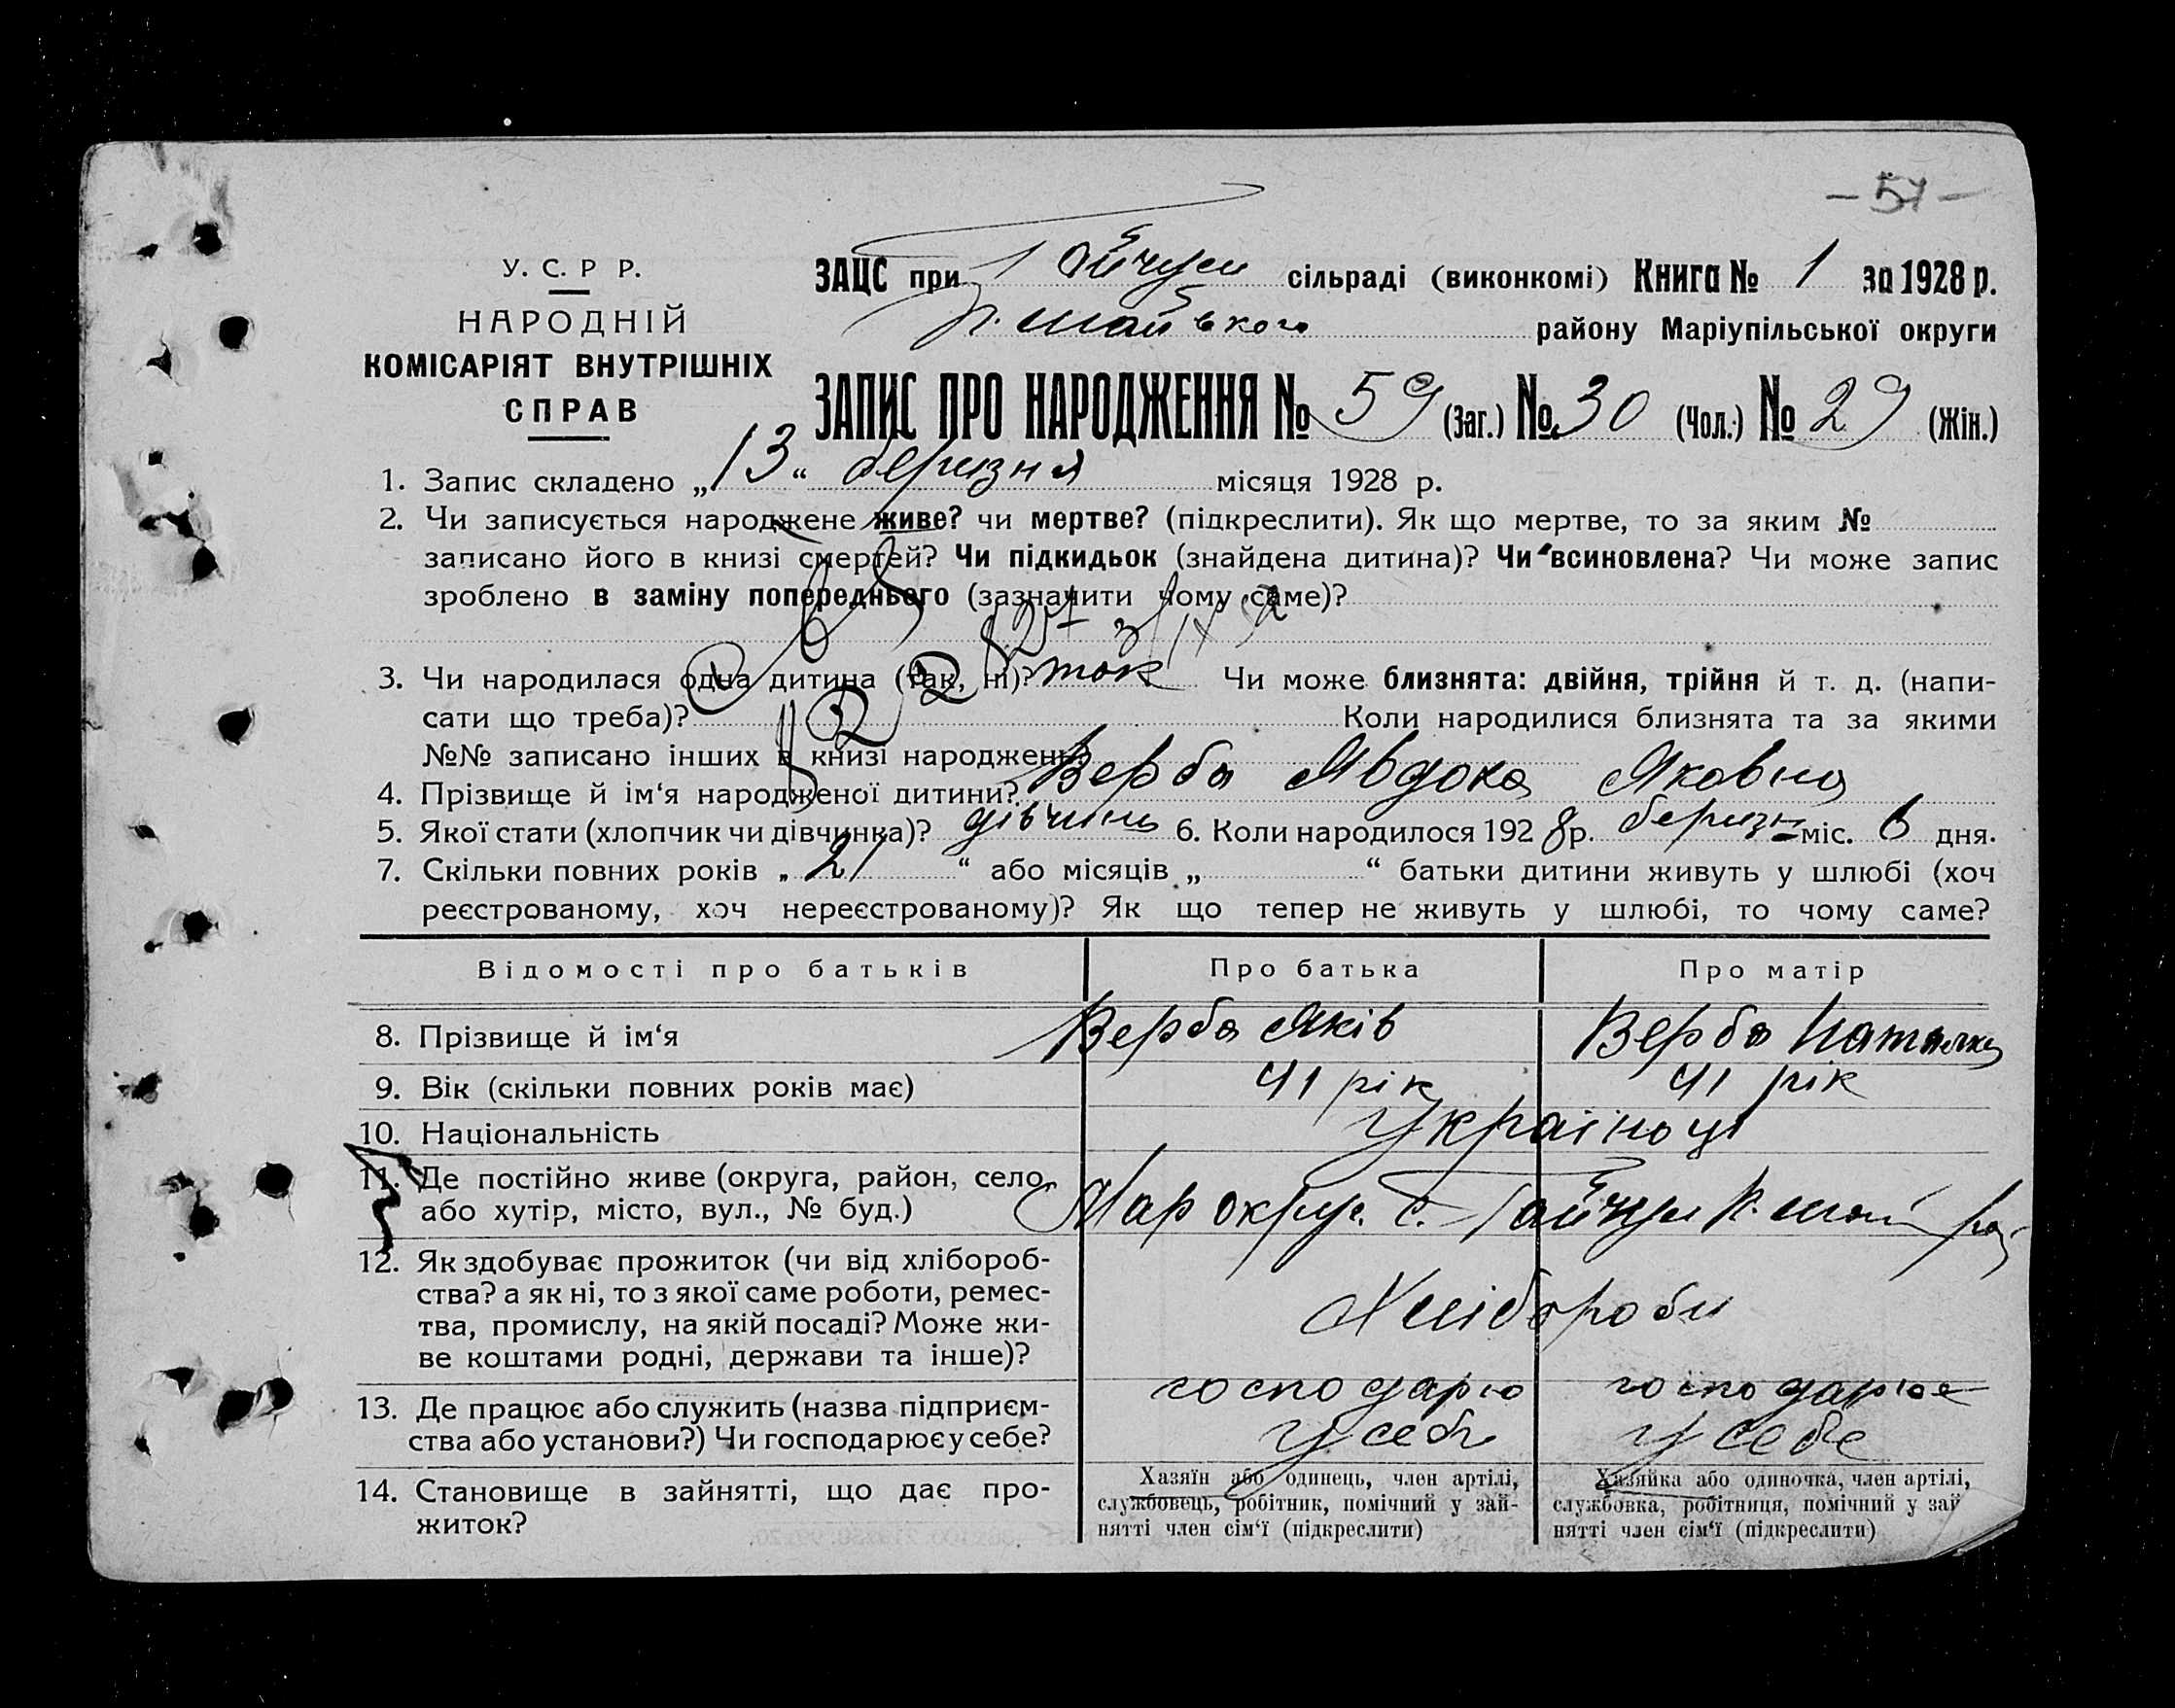 — 57 —
У. С. Р Р.
НАРОДНІЙ
КОМІСАРІЯТ ВНУТРІШНІХ
СПРАВ
ЗАЦС при Гайчули сільраді (виконкомі) Книга № 1 за 1928 р.
району Маріупільської округи
ЗАПИС ПРО НАРОДЖЕННЯ № 59 (Заг.) № 30 (Чол.) № 29 (Жін.)
1. Запис складено „13“ березня місяця 1928 р.
2. Чи записується народжене живе? чи мертве? (підкреслити). Як що мертве, то за яким №
записано його в книзі смертей? Чи підкидьок (знайдена дитина)? Чи всиновлена? Чи може запис
зроблено в заміну попереднього (зазначити чому саме)?
3. Чи народилася одна дитина (так, ні)? так Чи може близнята: двійня, трійня й т. д. (напи-
сати що треба)? Коли народилися близнята та за якими
№№ записано інших в книзі народжень
4. Прізвище й ім‘я народженої дитини? Верба Явдоха Яковна
5. Якої стати (хлопчик чи дівчинка)? дівчина 6. Коли народилося 1928 р. березня міс. 6 дня.
7. Скільки повних років „21“ або місяців „ “ батьки дитини живуть у шлюбі (хоч
реєстрованому, хоч нереєстрованому)? Як що тепер не живуть у шлюбі, то чому саме?
Відомості про батьків Про батька Про матір
8. Прізвище й ім‘я Верба Яків Верба Наталка
9. Вік (скільки повних років має) 41 рік 41 рік
10. Національність Українці
11. Де постійно живе (округа, район, село, Мар округ. с. Гайчули
або хутір, місто, вул., № буд.)
12. Як здобуває прожиток (чи від хлібороб-
ства? а як ні, то з якої саме роботи, ремес- Хлібороби
тва, промислу, на якій посаді? Може жи-
ве коштами родні, держави та інше)?
13. Де працює або служить (назва підприєм- господарю господарює
ства або установи?) Чи господарює у себе? у себе у себе
14. Становище в зайнятті, що дає про-
житок?
Хазяїн або одинець, член артілі,
службовець, робітник, помічний у зай-
нятті член сім‘ї (підкреслити)
Хазяйка або одиночка, член артілі,
службовка, робітниця, помічний у зай
нятті член сім‘ї (підкреслити)